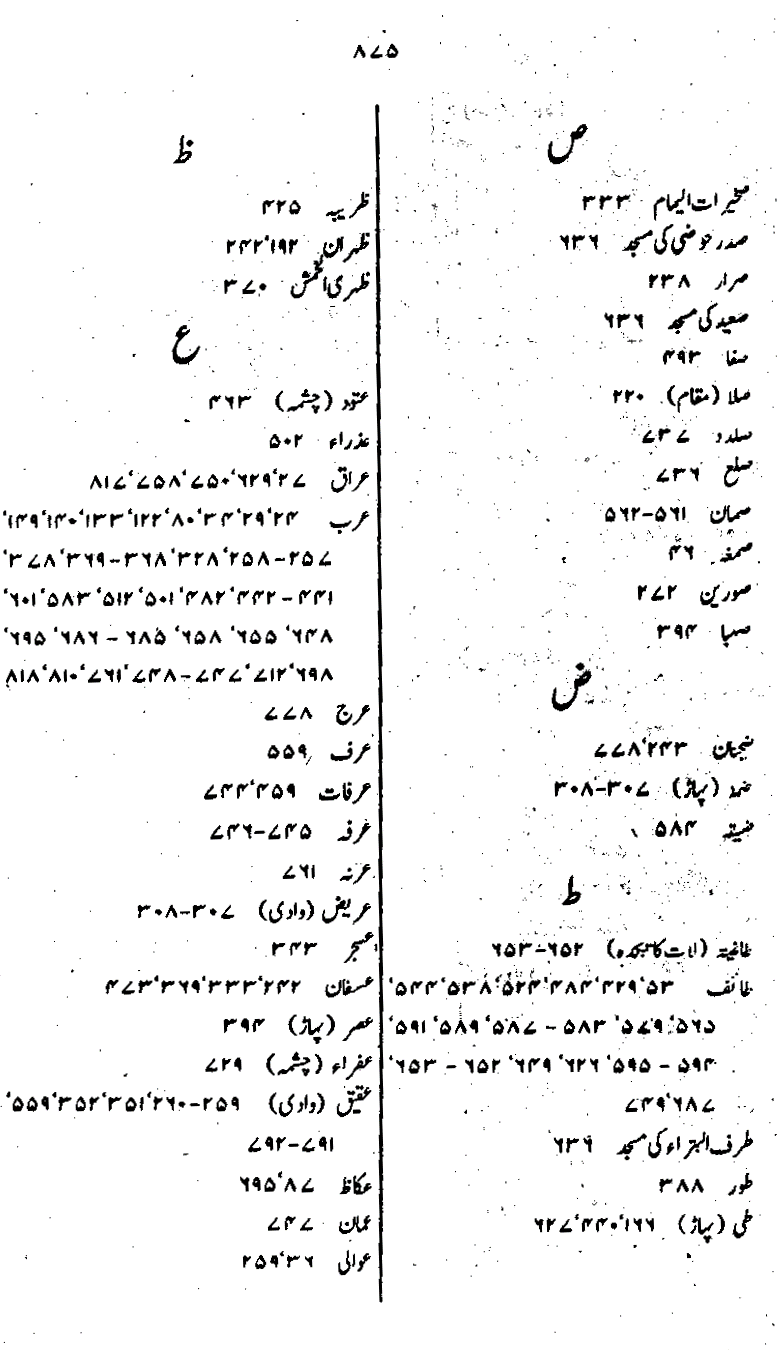 ۸۷۵
ص
صخیرات الیمام ۳۳۳
صدر حوضی کی مسجد ۶۳۶
صرار ۲۳۸
صعید کی مسجد ۶۳۶
صفا ۴۹۳
صلا (مقام) ۲۲۰
صلدد ۷۳۷
صلع ۷۳۶
صمان ۵۶۱-۵۶۲
صمغہ ۴۶
صورین ۲۷۲
صہبا ۳۹۴
ض
ضجنان ۲۴۳‘۷۷۸
ضمد (پہاڑ) ۳۰۷-۳۰۸
ضیقہ ۵۸۴
ط
طاغیتہ (لات کا بتکدہ) ۶۵۲-۶۵۳
طائف ۵۳‘۴۲۹‘۴۸۴‘۵۲۴‘۵۳۸‘۵۴۴‘
۵۶۵‘۵۷۹‘ ۵۸۳ - ۵۸۷‘ ۵۸۹‘ ۵۹۱‘
۵۹۴ - ۵۹۵‘ ۶۲۶‘ ۶۴۹‘ ۶۵۲ - ۶۵۳‘
۶۸۷‘۷۴۹
طرف البتراء کی مسجد ۶۳۶
طور ۳۸۸
طی (پہاڑ) ۱۶۶‘۴۴۰‘۶۲۷
ظ
ظریبہ ۴۲۵
ظہران ۱۹۲‘۲۴۲
ظہری الخمش ۳۷۰
ع
عتود (چشمہ) ۴۶۳
عذراء ۵۰۲
عراق ۲۷‘۶۲۹‘۷۵۰‘۷۵۸‘۸۱۷
عرب ۲۴‘۲۹‘۳۴‘۸۰‘۱۲۲‘۱۳۳‘۱۴۰‘۱۴۹‘
۲۵۷-۲۵۸‘۳۲۸‘۳۶۸-۳۶۹‘۳۷۸‘
۴۴۱-۴۴۲‘۴۸۲‘۵۰۱‘۵۱۲‘۵۸۳‘۶۰۱‘
۶۴۸‘ ۶۵۵‘ ۶۵۸‘ ۶۸۵ - ۶۸۶‘ ۶۹۵‘
۶۹۸‘۷۱۲‘۷۴۷-۷۴۸‘۷۶۱‘۸۱۰‘۸۱۸
عرج ۷۷۸
عرف ۵۵۹
عرفات ۴۵۹‘۷۴۴
عرفہ ۷۴۵-۷۴۶
عرنہ ۷۶۱
عریض (وادی) ۳۰۷-۳۰۸
عسجر ۳۴۳
عسفان ۲۴۲‘۳۳۳‘۳۶۹‘۴۷۳
عصر (پہاڑ) ۳۹۴
عفراء (چشمہ) ۷۲۹
عقیق (وادی) ۲۵۹-۲۶۰‘۳۵۱‘۳۵۲‘۵۵۹‘
۷۹۱-۷۹۲
عکاظ ۸۷‘۶۹۵
عمان ۷۴۷
عوالی ۳۶‘۲۵۹